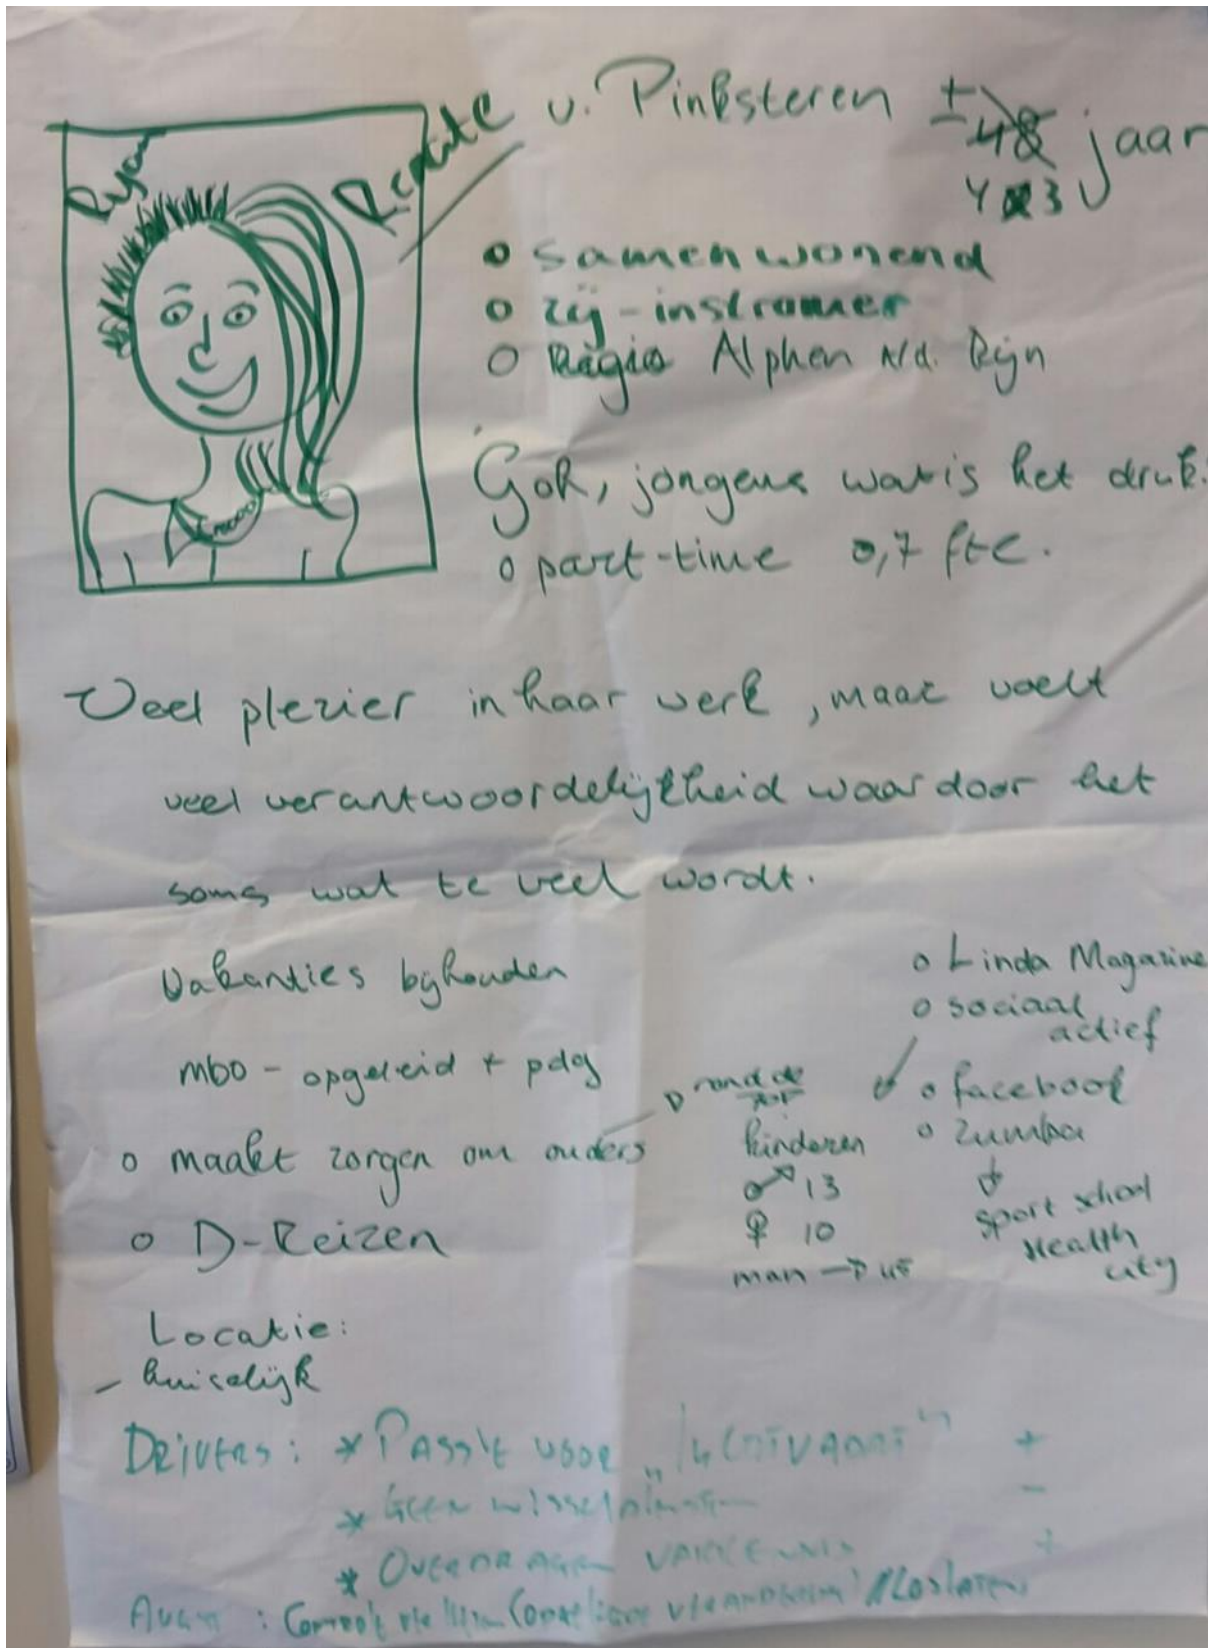 Ryan
Renate v. Pinksteren ± 48 jaar
43
o samenwonend
o zij-instromer
o Regio Alphen a/d. Rijn
Goh, jongens wat is het druk.
o part-time 0,7 fte.
Veel plezier in haar werk, maar voelt
veel verantwoordelijkheid waardoor het
soms wat te veel wordt.
Vakanties bijhouden
mbo - opgeleid + pdg
o maakt zorgen om ouders
o D-Reizen
rond de
kinderen
♂ 13
♀ 10
man →
o Linda Magazine
o sociaal
actief
o facebook
o Zumba
sport school
Health
city
Locatie:
- huiselijk
Drivers: * Passie voor +
* Geen -
* Overdragen vakkennis +